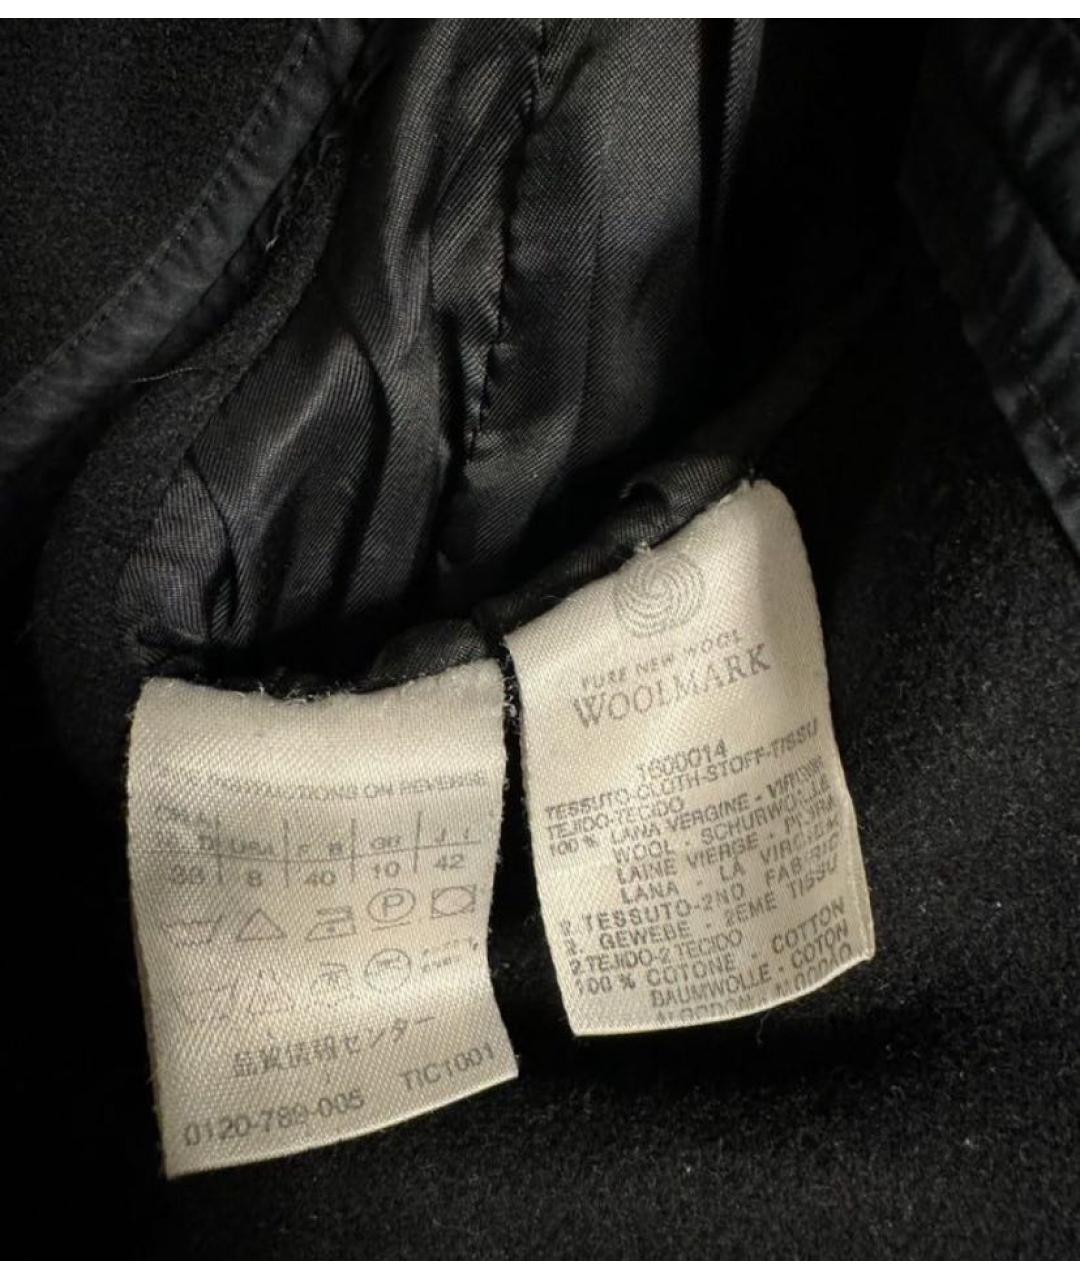 ON REVERSE
USA F B GB I
38 8 40 10 42
P
品質情報センター
0120-789-005 TIC1001
PURE NEW WOOL
WOOLMARK
1600014
TESSUTO-CLOTH-STOFF-TISSU
TEJIDO-TECIDO
100 % LANA VERGINE - VIRGIN
WOOL - SCHURWOLLE
LAINE VIERGE - PURA
LANA - LA VIRGEM
2.TESSUTO-2ND FABRIC
2. GEWEBE - 2EME TISSU
2TEJIDO-2TECIDO
100 % COTONE - COTTON
BAUMWOLLE - COTON